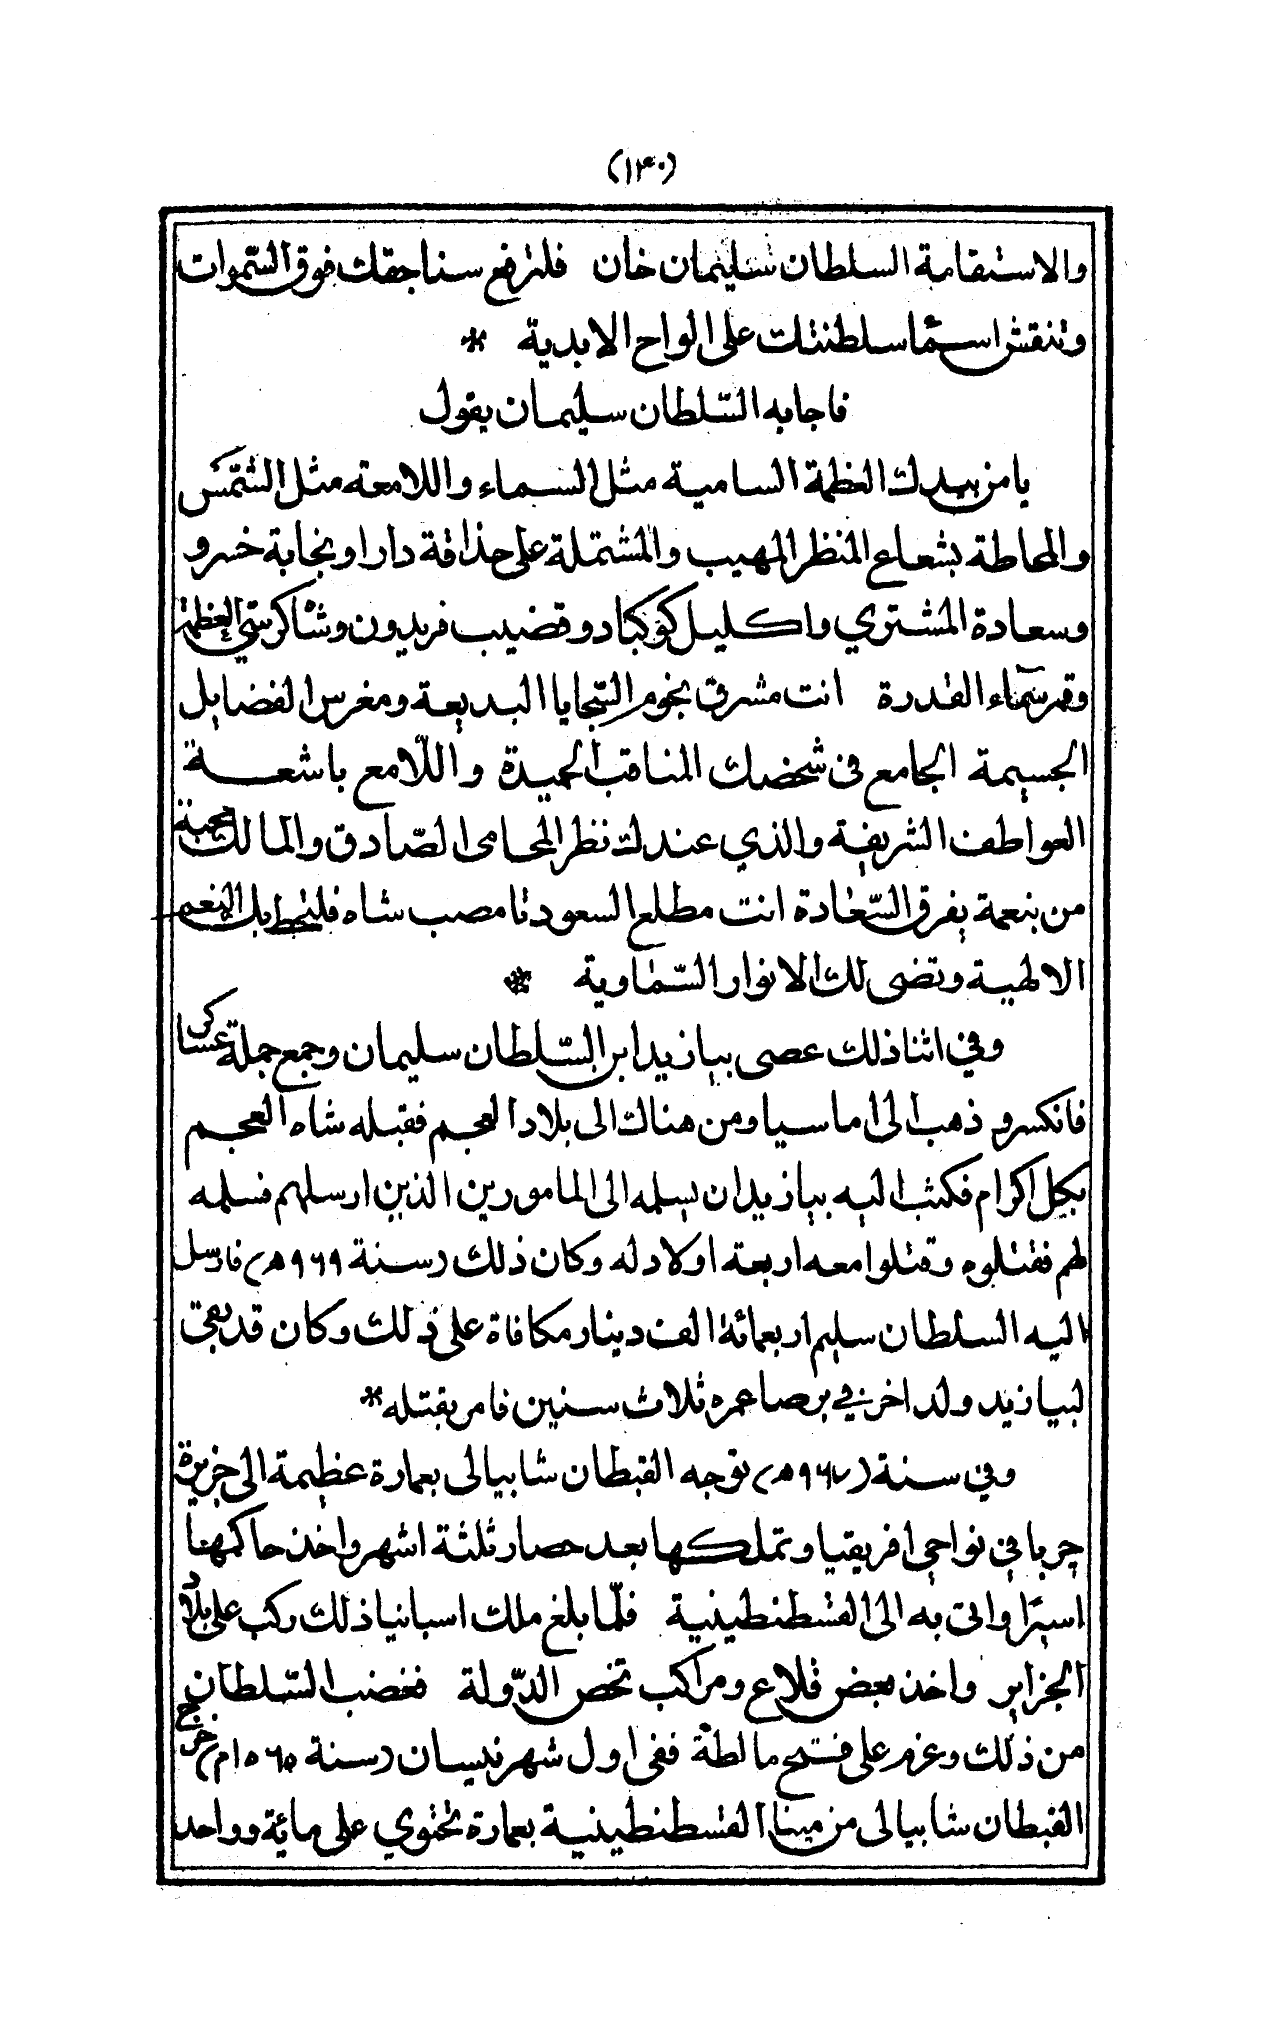 (١٣٠)
والاستقامة السلطان سليمان خان فلترفع سناجقك فوق السّموات
وتنقش اسما سلطنتك على الواح الابدية *
فاجابه السّلطان سليمان يقول
يا من بيدك العظمة السامية مثل السماء واللامعة مثل الشّمس
والمحاطة بشعاع المنظر المهيب والمشتملة على حذاقة دارا ونجابة خسرو
وسعادة المشتري واكليل كوكباد وقضيب فريدون وشاكرسّي العظمة
وقمر سماء القدرة انت مشرق نجوم السّجايا البديعة ومغرس الفضايل
الجسيمة الجامع في شخصك المناقب الحميدة واللّامع باشعة
العواطف الشريفة والذي عندك نظر المحامى الصّادق والمالك محبة
من بنعمة يفرق السّعادة انت مطلع السعود تامصب شاه فلتحط بك النعم
الالهية وتضى لك الانوار السّماوية *
وفي اثنا ذلك عصى بيازيد ابن السّلطان سليمان وجمع جملة عساكر
فانكسر و ذهب الى اماسيا ومن هناك الى بلاد العجم فقبله شاه العجم
بكل اكرام فكتب اليه بيازيد ان يسلمه الى المامورين الذين ارسلهم فسلمه
لهم فقتلوه وقتلوا معه اربعة اولاد له وكان ذلك (سنة ٩٦٩ هـ) فارسل
اليه السلطان سليم اربعمائة الف دينار مكافاة على ذلك وكان قد بقى
لبيازيد ولد اخر في برصا عمره ثلاث سنين فامر بقتله *
وفي سنة (٩٦٧ هـ) توجه القبطان شابيالى بعمارة عظيمة الى جزيرة
جربا في نواحي افريقيا وتملكها بعد حصار ثلثة اشهر واخذ حاكمها
اسيرًا واتى به الى القسطنطينية فلمّا بلغ ملك اسبانيا ذلك ركب على بلاد
الجزاير واخذ بعض قلاع ومراكب تخص الدّولة فغضب السّلطان
من ذلك وعزم على فتح مالطة ففى اول شهر نيسان (سنة ١٥٦٥ م) خرج
القبطان شابيالى من مينا القسطنطينية بعمارة تحتوي على مائة وواحد